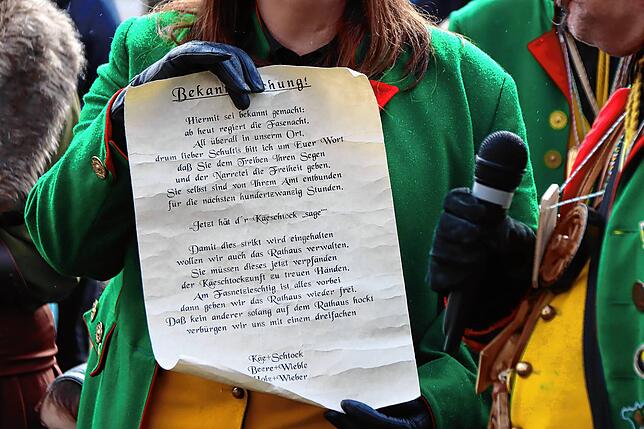 Bekanntmachung!
Hiermit sei bekannt gemacht:
ab heut regiert die Fasenacht,
All überall in unserm Ort,
drum lieber Schultis bitt ich um Euer Wort
daß Sie dem Treiben Ihren Segen
und der Narretei die Freiheit geben.
Sie selbst sind von Ihrem Amt entbunden
für die nächsten hundertzwanzig Stunden.
„Jetzt hät d´r Kaeschtock „sage“
Damit dies strikt wird eingehalten
wollen wir auch das Rathaus verwalten.
Sie müssen dieses jetzt verpfänden
der Kaeschtockzunft zu treuen Händen.
Am Fasnetzieschtig ist alles vorbei
dann geben wir das Rathaus wieder frei.
Daß kein anderer solang auf dem Rathaus hockt
verbürgen wir uns mit einem dreifachen
Kae+Schtock
Beere+Wieble
Holz+Wieber